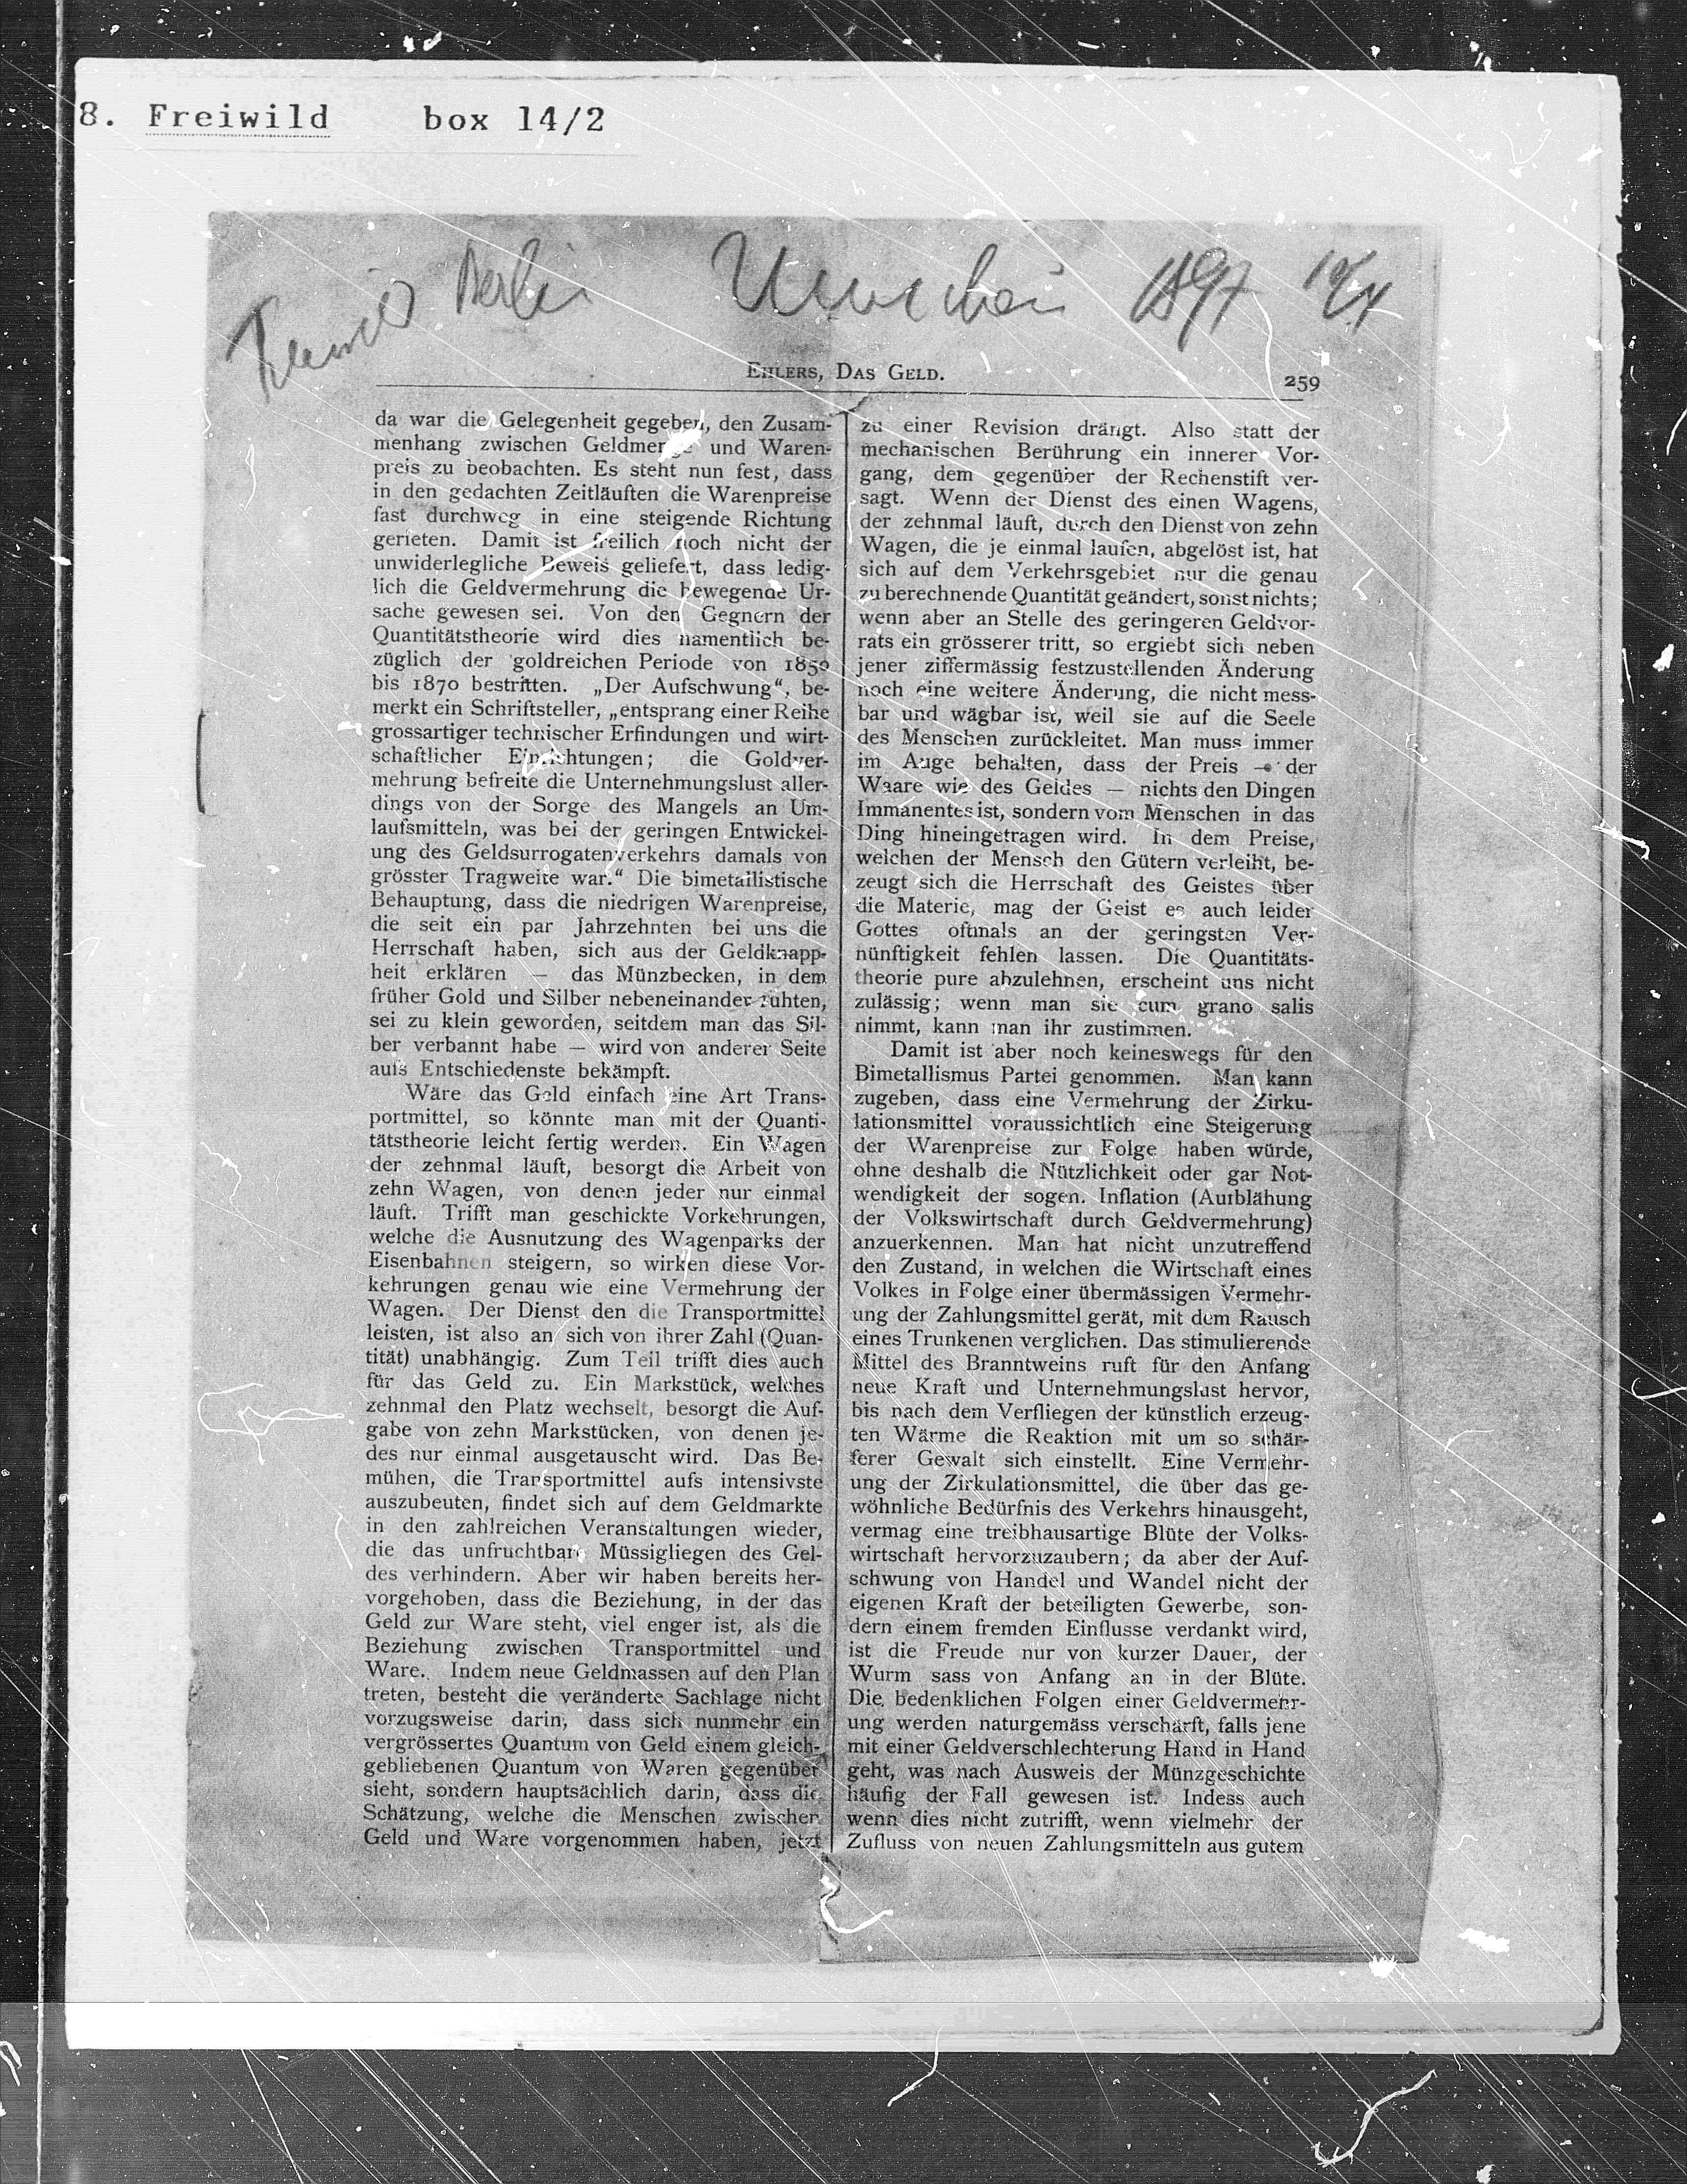 8. Freiwild box 14/2
Berlin Umschau 1897 10/4
EHLERS, DAS GELD. 259
da war die Gelegenheit gegeben, den Zusam-
menhang zwischen Geldmenge und Waren-
preis zu beobachten. Es steht nun fest, dass
in den gedachten Zeitläuften die Warenpreise
fast durchweg in eine steigende Richtung
gerieten. Damit ist freilich noch nicht der
unwiderlegliche Beweis geliefert, dass ledig-
lich die Geldvermehrung die bewegende Ur-
sache gewesen sei. Von den Gegnern der
Quantitätstheorie wird dies namentlich be-
züglich der goldreichen Periode von 1850
bis 1870 bestritten. „Der Aufschwung“, be-
merkt ein Schriftsteller, „entsprang einer Reihe
grossartiger technischer Erfindungen und wirt-
schaftlicher Einrichtungen; die Goldver-
mehrung befreite die Unternehmungslust aller-
dings von der Sorge des Mangels an Um-
laufsmitteln, was bei der geringen Entwickel-
ung des Geldsurrogatenverkehrs damals von
grösster Tragweite war.“ Die bimetallistische
Behauptung, dass die niedrigen Warenpreise,
die seit ein par Jahrzehnten bei uns die
Herrschaft haben, sich aus der Geldknapp-
heit erklären — das Münzbecken, in dem
früher Gold und Silber nebeneinander ruhten,
sei zu klein geworden, seitdem man das Sil-
ber verbannt habe — wird von anderer Seite
aufs Entschiedenste bekämpft.
Wäre das Geld einfach eine Art Trans-
portmittel, so könnte man mit der Quanti-
tätstheorie leicht fertig werden. Ein Wagen
der zehnmal läuft, besorgt die Arbeit von
zehn Wagen, von denen jeder nur einmal
läuft. Trifft man geschickte Vorkehrungen,
welche die Ausnutzung des Wagenparks der
Eisenbahnen steigern, so wirken diese Vor-
kehrungen genau wie eine Vermehrung der
Wagen. Der Dienst den die Transportmittel
leisten, ist also an sich von ihrer Zahl (Quan-
tität) unabhängig. Zum Teil trifft dies auch
für das Geld zu. Ein Markstück, welches
zehnmal den Platz wechselt, besorgt die Auf-
gabe von zehn Markstücken, von denen je-
des nur einmal ausgetauscht wird. Das Be-
mühen, die Transportmittel aufs intensivste
auszubeuten, findet sich auf dem Geldmarkte
in den zahlreichen Veranstaltungen wieder,
die das unfruchtbare Müssigliegen des Gel-
des verhindern. Aber wir haben bereits her-
vorgehoben, dass die Beziehung, in der das
Geld zur Ware steht, viel enger ist, als die
Beziehung zwischen Transportmittel und
Ware. Indem neue Geldmassen auf den Plan
treten, besteht die veränderte Sachlage nicht
vorzugsweise darin, dass sich nunmehr ein
vergrössertes Quantum von Geld einem gleich-
gebliebenen Quantum von Waren gegenüber
sieht, sondern hauptsächlich darin, dass die
Schätzung, welche die Menschen zwischen
Geld und Ware vorgenommen haben, jetzt
zu einer Revision drängt. Also statt der
mechanischen Berührung ein innerer Vor-
gang, dem gegenüber der Rechenstift ver-
sagt. Wenn der Dienst des einen Wagens,
der zehnmal läuft, durch den Dienst von zehn
Wagen, die je einmal laufen, abgelöst ist, hat
sich auf dem Verkehrsgebiet nur die genau
zu berechnende Quantität geändert, sonst nichts;
wenn aber an Stelle des geringeren Geldvor-
rats ein grösserer tritt, so ergiebt sich neben
jener ziffermässig festzustellenden Änderung
noch eine weitere Änderung, die nicht mess-
bar und wägbar ist, weil sie auf die Seele
des Menschen zurückleitet. Man muss immer
im Auge behalten, dass der Preis — der
Waare wie des Geldes — nichts den Dingen
Immanentes ist, sondern vom Menschen in das
Ding hineingetragen wird. In dem Preise,
welchen der Mensch den Gütern verleiht, be-
zeugt sich die Herrschaft des Geistes über
die Materie, mag der Geist es auch leider
Gottes oftmals an der geringsten Ver-
nünftigkeit fehlen lassen. Die Quantitäts-
theorie pure abzulehnen, erscheint uns nicht
zulässig; wenn man sie cum grano salis
nimmt, kann man ihr zustimmen.
Damit ist aber noch keineswegs für den
Bimetallismus Partei genommen. Man kann
zugeben, dass eine Vermehrung der Zirku-
lationsmittel voraussichtlich eine Steigerung
der Warenpreise zur Folge haben würde,
ohne deshalb die Nützlichkeit oder gar Not-
wendigkeit der sogen. Inflation (Aufblähung
der Volkswirtschaft durch Geldvermehrung)
anzuerkennen. Man hat nicht unzutreffend
den Zustand, in welchen die Wirtschaft eines
Volkes in Folge einer übermässigen Vermehr-
ung der Zahlungsmittel gerät, mit dem Rausch
eines Trunkenen verglichen. Das stimulierende
Mittel des Branntweins ruft für den Anfang
neue Kraft und Unternehmungslust hervor,
bis nach dem Verfliegen der künstlich erzeug-
ten Wärme die Reaktion mit um so schär-
ferer Gewalt sich einstellt. Eine Vermehr-
ung der Zirkulationsmittel, die über das ge-
wöhnliche Bedürfnis des Verkehrs hinausgeht,
vermag eine treibhausartige Blüte der Volks-
wirtschaft hervorzuzaubern; da aber der Auf-
schwung von Handel und Wandel nicht der
eigenen Kraft der beteiligten Gewerbe, son-
dern einem fremden Einflusse verdankt wird,
ist die Freude nur von kurzer Dauer, der
Wurm sass von Anfang an in der Blüte.
Die bedenklichen Folgen einer Geldvermehr-
ung werden naturgemäss verschärft, falls jene
mit einer Geldverschlechterung Hand in Hand
geht, was nach Ausweis der Münzgeschichte
häufig der Fall gewesen ist. Indess auch
wenn dies nicht zutrifft, wenn vielmehr der
Zufluss von neuen Zahlungsmitteln aus gutem